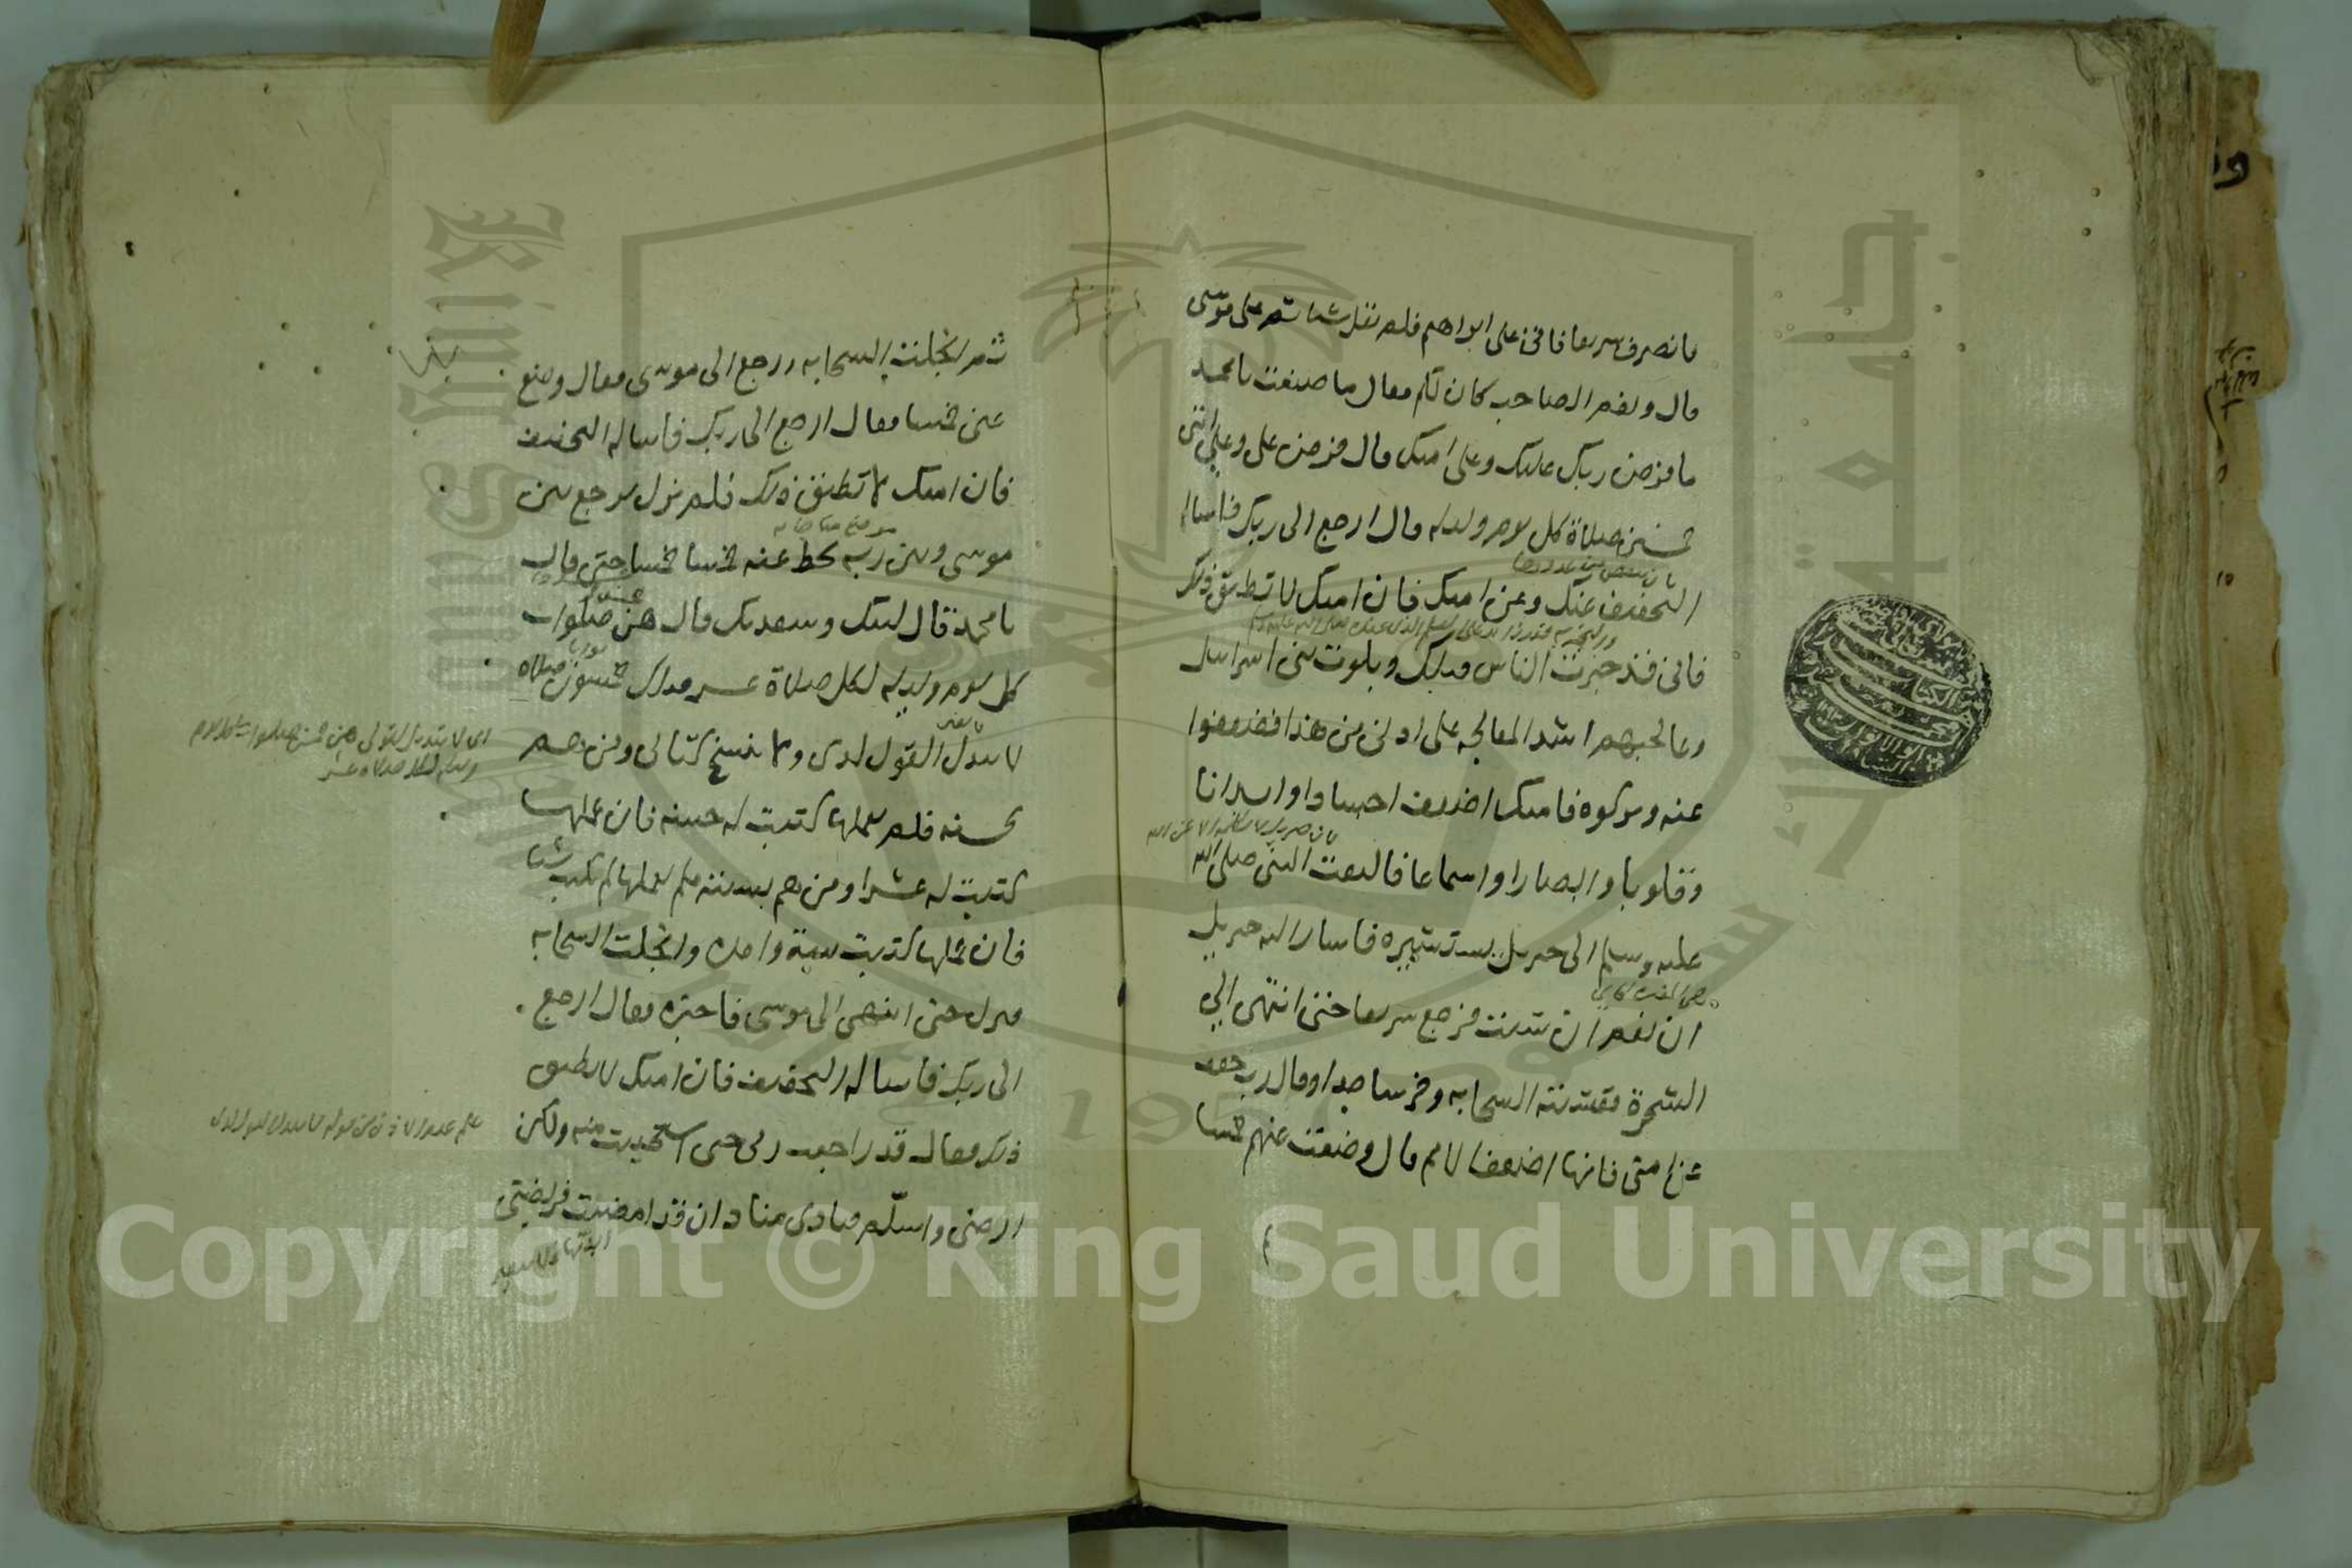 فانصرف سريعا فاتى على ابراهيم فلم يقل شيئا ثم على موسى
قال ونعم الصاحب كان لكم فقال ما صنعت يا محمد
ما فرض ربك عليك وعلى امتك قال فرض علي وعلى امتي
خمسين صلاة كل يوم وليلة قال ارجع الى ربك فاساله
التخفيف عنك وعن امتك فان امتك لا تطيق ذلك
فانى قد خبرت الناس قبلك وبلوت بنى اسرائيل
وعالجتهم اشد المعالجة على ادنى من هذا فضعفوا
عنه وتركوه فامتك اضعف اجسادا وابدانا
وقلوبا وابصارا واسماعا فالتفت النبى صلى الله
عليه وسلم الى جبريل يستشيره فاشار اليه جبريل
ان نعم ان شئت فرجع سريعا حتى انتهى الى
الشجرة فغشيته السحابة وخر ساجدا وقال رب خفف
عن امتى فانها اضعف الامم قال وضعت عنهم خمسا
ثم انجلت السحابة ورجع الى موسى فقال وضع
عنى خمسا فقال ارجع الى ربك فاساله التخفيف
فان امتك لا تطيق ذلك فلم يزل يرجع بين
موسى وبين ربه يحط عنه خمسا خمسا حتى قال
يا محمد قال لبيك وسعديك قال هن خمس صلوات
كل يوم وليلة لكل صلاة عشر فذلك خمسون صلاة
لا يبدل القول لدى ولا ينسخ كتابى ومن هم
بحسنة فلم يعملها كتبت له حسنة فان عملها
كتبت له عشرا ومن هم بسيئة فلم يعملها لم تكتب شيئا
فان عملها كتبت سيئة واحدة وانجلت السحابة
فنزل حتى انتهى الى موسى فاخبره فقال ارجع
الى ربك فاساله التخفيف فان امتك لا تطيق
ذلك فقال قد راجعت ربى حتى استحييت منه ولكن
ارضى واسلم فنادى مناد ان قد امضيت فريضتى
Copyright © King Saud University
جامعة الملك سعود
King Saud University
1957